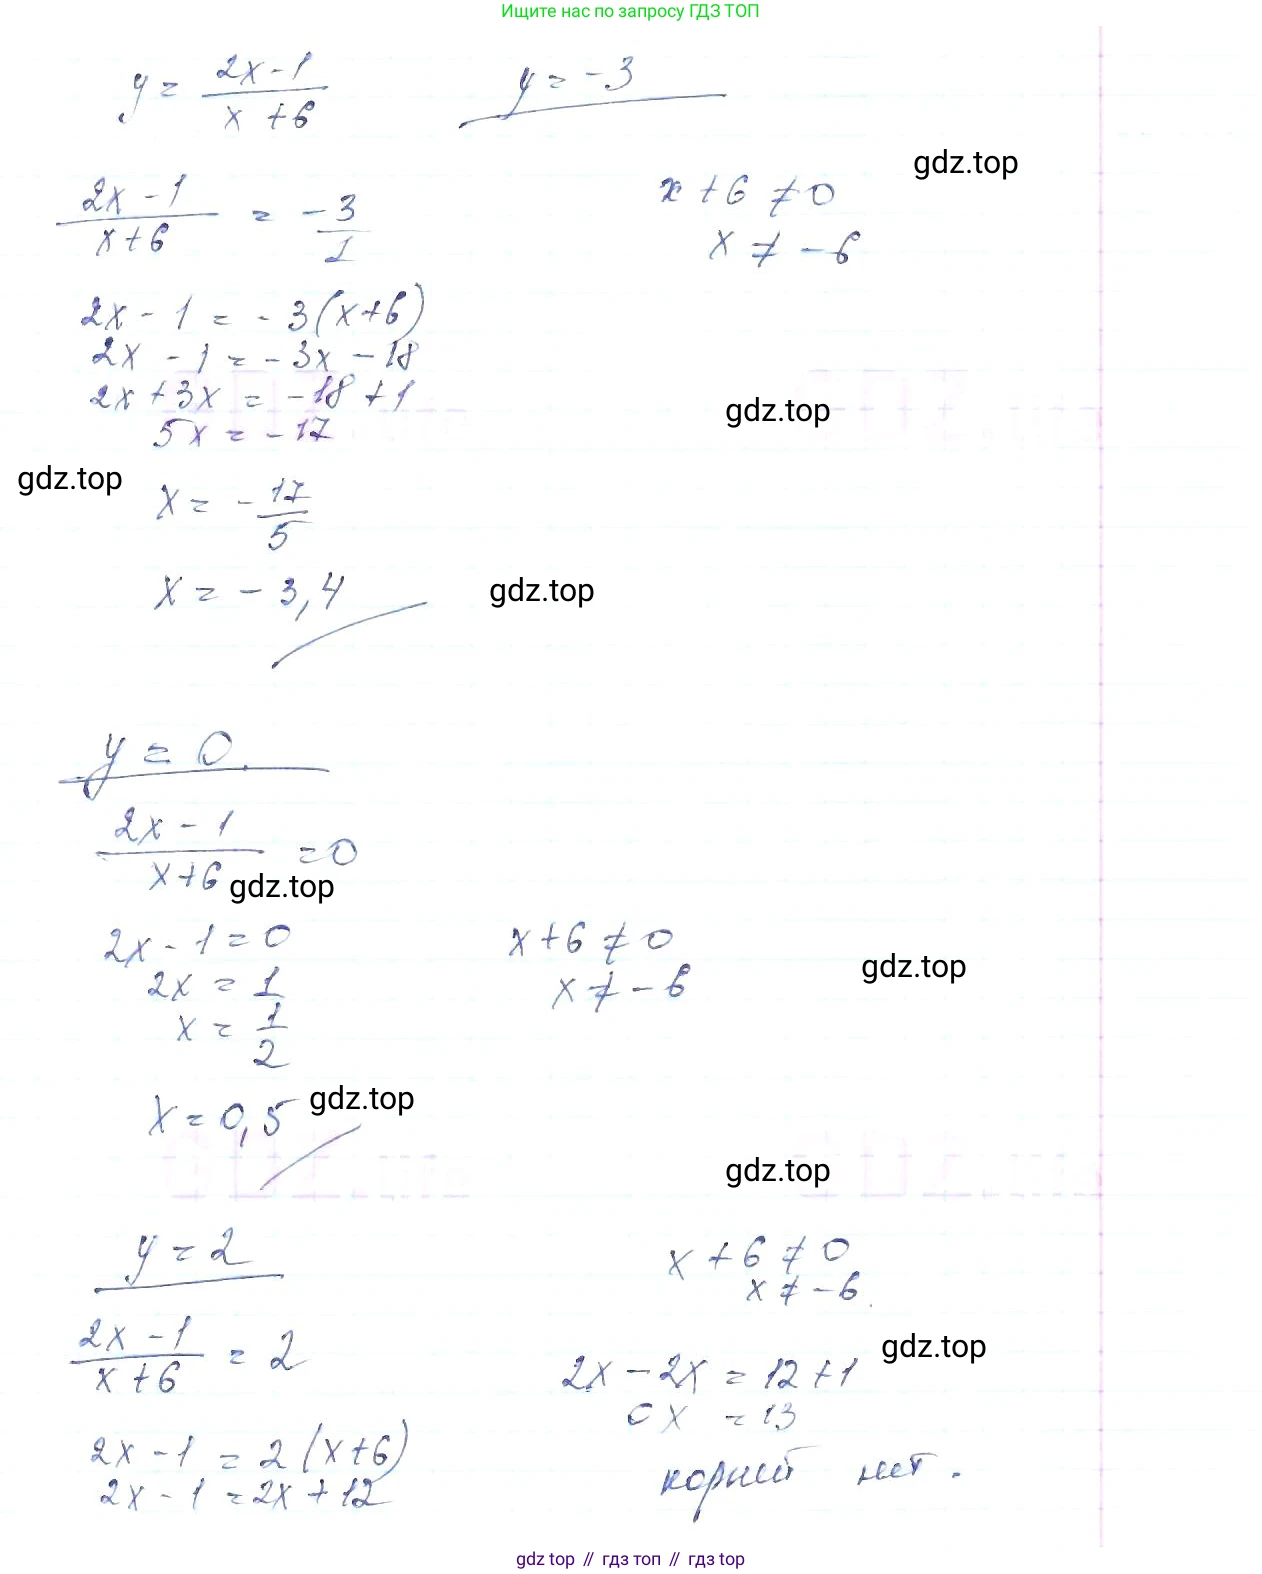 Ищите нас по запросу ГДЗ ТОП
y = (2x - 1)/(x + 6)    y = -3
gdz.top
(2x - 1)/(x + 6) = -3/1    x + 6 ≠ 0
x ≠ -6
2x - 1 = -3(x+6)
2x - 1 = -3x - 18
2x + 3x = -18 + 1
gdz.top
5x = -17
gdz.top
x = -17/5
x = -3,4
gdz.top
y = 0.
(2x - 1)/(x+6) = 0
gdz.top
2x - 1 = 0    x + 6 ≠ 0
gdz.top
2x = 1    x ≠ -6
x = 1/2
x = 0,5
gdz.top
gdz.top
y = 2    x + 6 ≠ 0
x ≠ -6.
(2x - 1)/(x + 6) = 2
gdz.top
2x - 1 = 2(x+6)
2x - 1 = 2x + 12
2x - 2x = 12 + 1
0x = 13
корней нет.
gdz top // гдз топ // gdz top